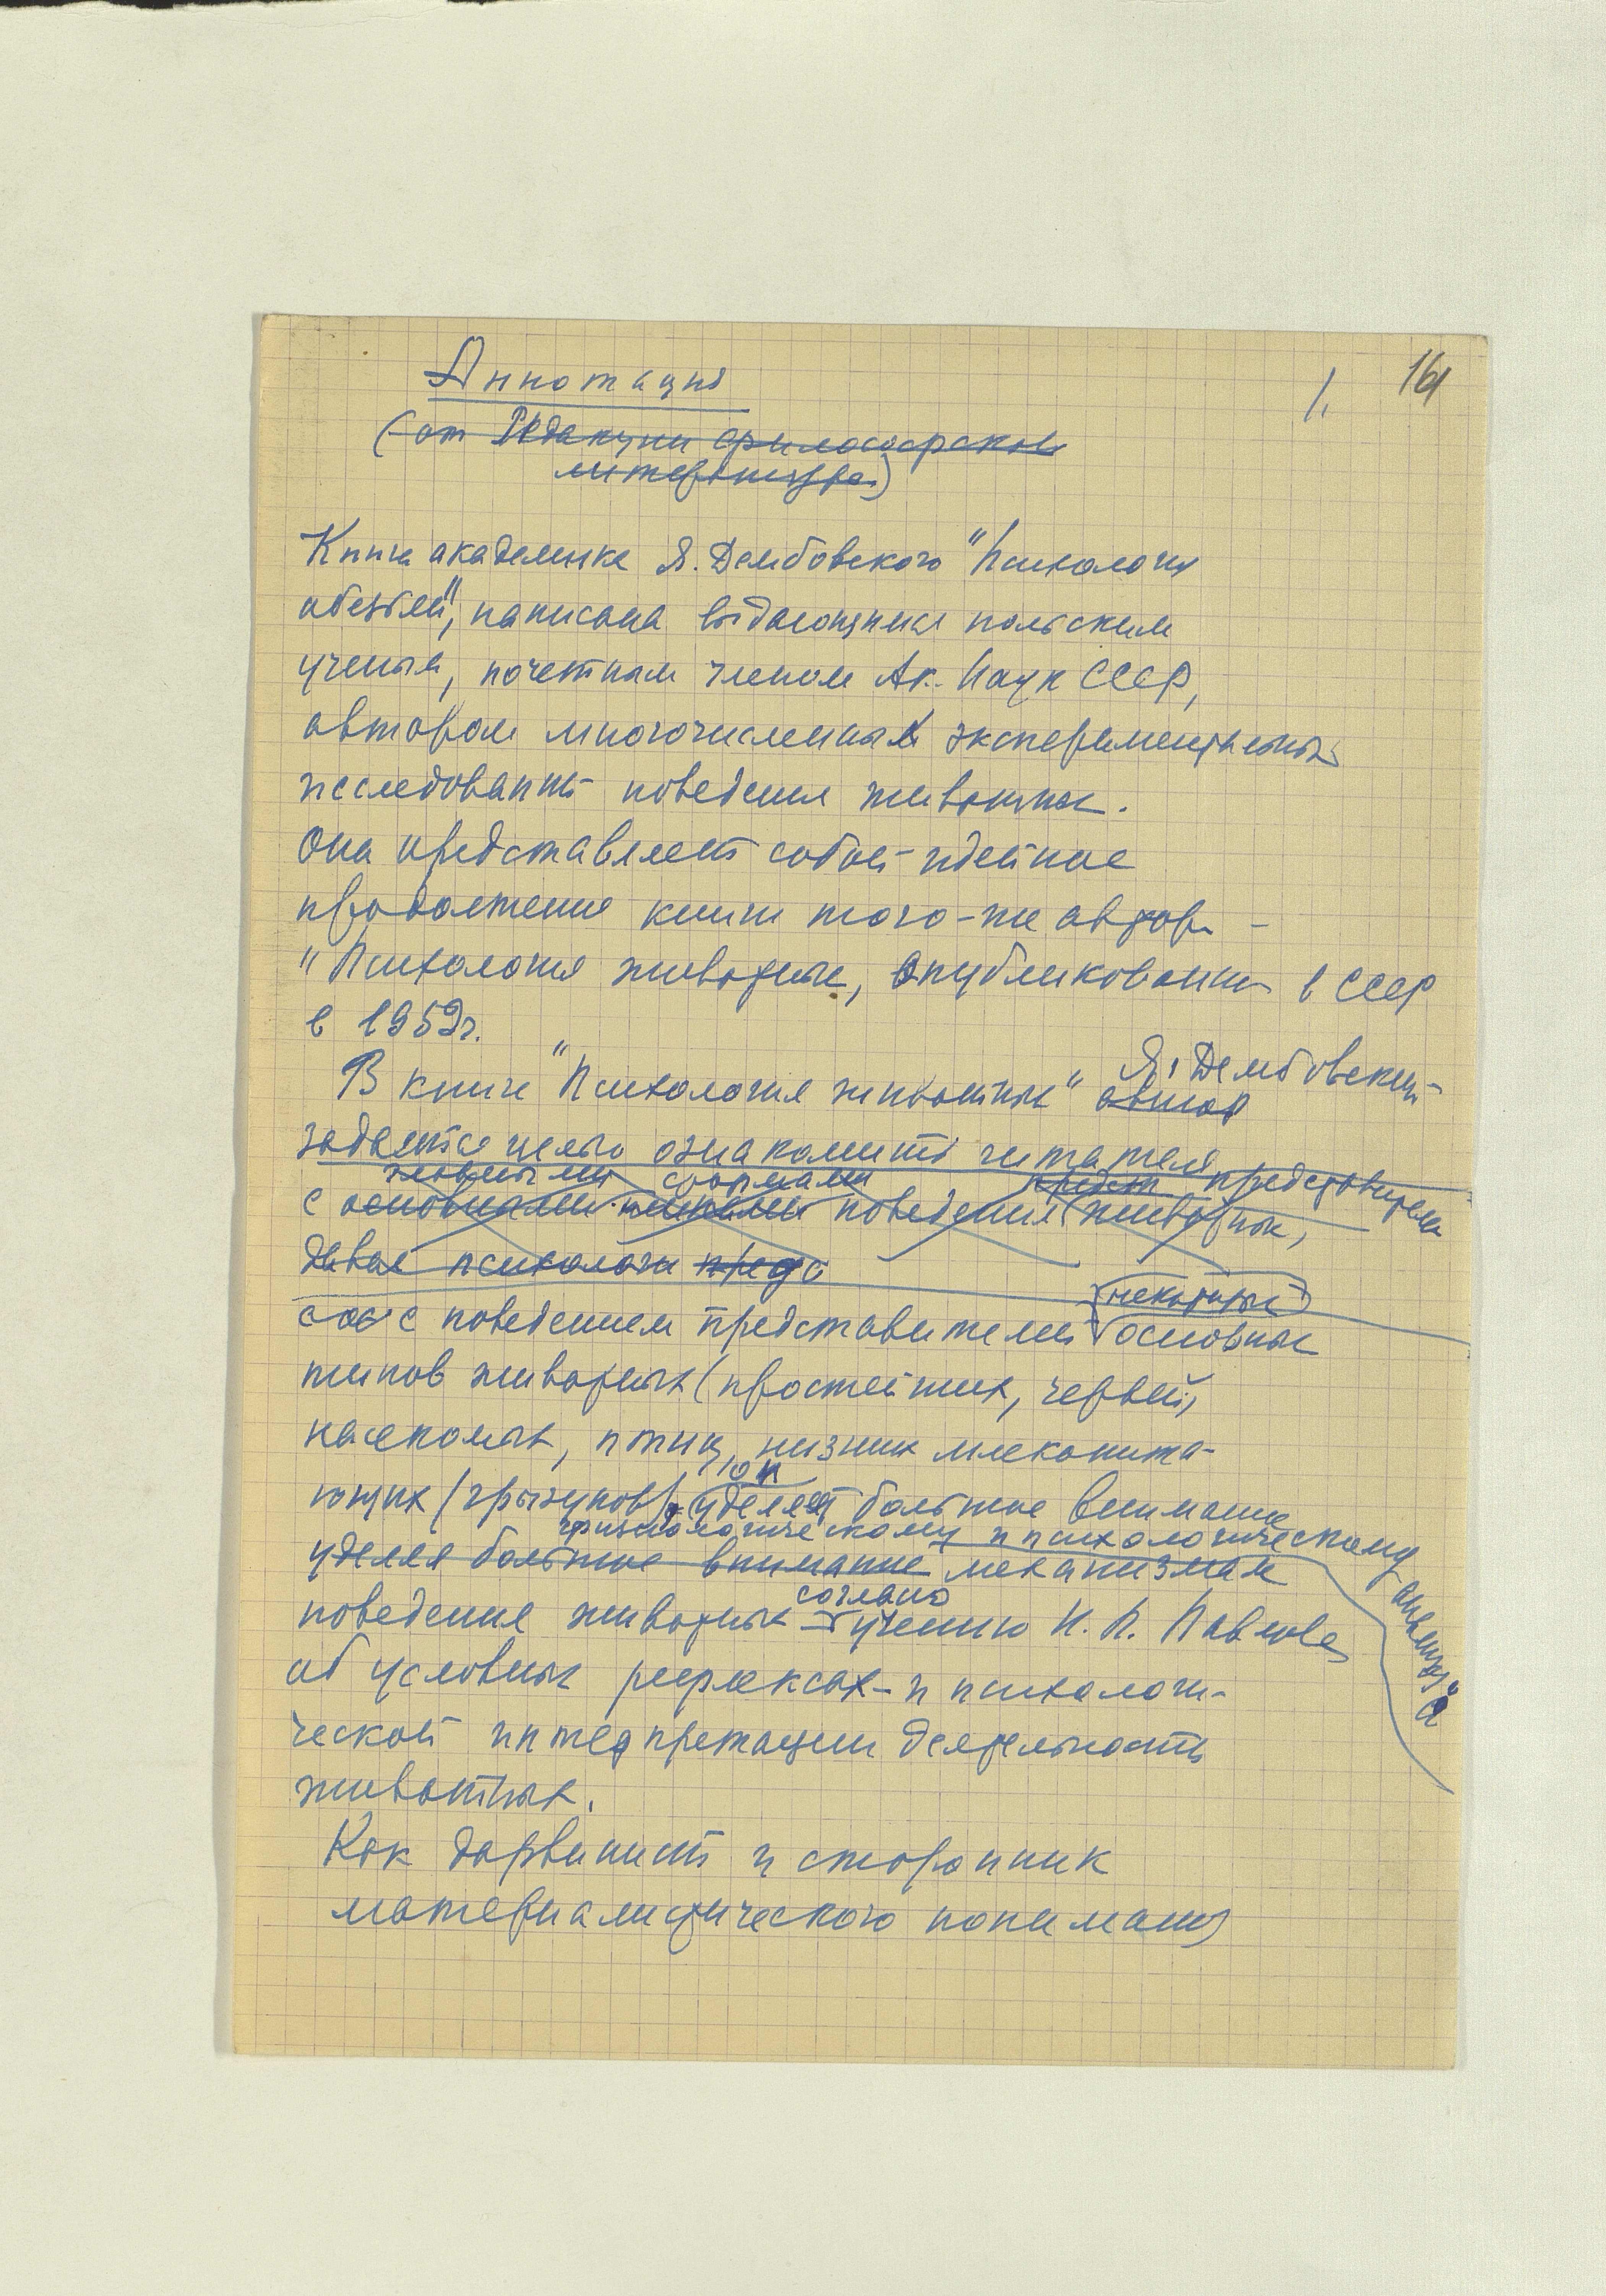 1. 161
Аннотация
(от Редакции философской
литературы)
Книга академика Я. Дембовского "Психология
обезьян", написана выдающимся польским
ученым, почетным членом Ак. Наук СССР,
автором многочисленных экспериментальных
исследований поведения животных.
Она представляет собой идейное
продолжение книги того-же автора –
"Психология животных, опубликованной в СССР
в 1959г.
Я. Дембовский
В книге "Психология животных" автор
задается целью ознакомить читателя
формами предст представителей
с основными поведения животных,
давая психологи предс
некоторых
с поведением представителей основных
типов животных (простейших, червей,
насекомых, птиц, низших млекопита-
он
ющих (грызунов), уделяет большое внимание
физиологическому и психологическому анализу
уделяя большое внимание механизмам
согласно
поведения животных учению И. П. Павлова
об условных рефлексах – и психологи-
ческой интерпретации деятельности
животных.
Как дарвинист и сторонник
материалистического понимания